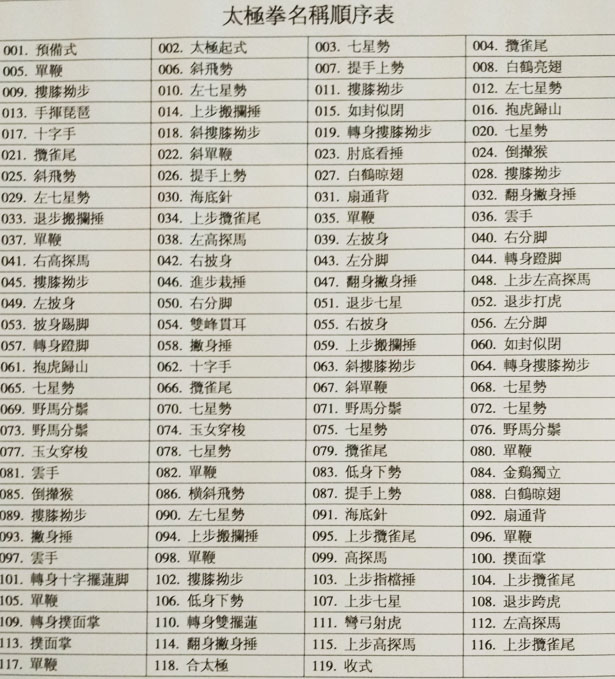 太極拳名稱順序表
001. 預備式 002. 太極起式 003. 七星勢 004. 攬雀尾
005. 單鞭 006. 斜飛勢 007. 提手上勢 008. 白鶴亮翅
009. 摟膝拗步 010. 左七星勢 011. 摟膝拗步 012. 左七星勢
013. 手揮琵琶 014. 上步搬攔捶 015. 如封似閉 016. 抱虎歸山
017. 十字手 018. 斜摟膝拗步 019. 轉身摟膝拗步 020. 七星勢
021. 攬雀尾 022. 斜單鞭 023. 肘底看捶 024. 倒攆猴
025. 斜飛勢 026. 提手上勢 027. 白鶴晾翅 028. 摟膝拗步
029. 左七星勢 030. 海底針 031. 扇通背 032. 翻身撇身捶
033. 退步搬攔捶 034. 上步攬雀尾 035. 單鞭 036. 雲手
037. 單鞭 038. 左高探馬 039. 左披身 040. 右分脚
041. 右高探馬 042. 右披身 043. 左分脚 044. 轉身蹬脚
045. 摟膝拗步 046. 進步栽捶 047. 翻身撇身捶 048. 上步左高探馬
049. 左披身 050. 右分脚 051. 退步七星 052. 退步打虎
053. 披身踢脚 054. 雙峰貫耳 055. 右披身 056. 左分脚
057. 轉身蹬脚 058. 撇身捶 059. 上步搬攔捶 060. 如封似閉
061. 抱虎歸山 062. 十字手 063. 斜摟膝拗步 064. 轉身摟膝拗步
065. 七星勢 066. 攬雀尾 067. 斜單鞭 068. 七星勢
069. 野馬分鬃 070. 七星勢 071. 野馬分鬃 072. 七星勢
073. 野馬分鬃 074. 玉女穿梭 075. 七星勢 076. 野馬分鬃
077. 玉女穿梭 078. 七星勢 079. 攬雀尾 080. 單鞭
081. 雲手 082. 單鞭 083. 低身下勢 084. 金鷄獨立
085. 倒攆猴 086. 橫斜飛勢 087. 提手上勢 088. 白鶴晾翅
089. 摟膝拗步 090. 左七星勢 091. 海底針 092. 扇通背
093. 撇身捶 094. 上步搬攔捶 095. 上步攬雀尾 096. 單鞭
097. 雲手 098. 單鞭 099. 高探馬 100. 撲面掌
101. 轉身十字擺蓮脚 102. 摟膝拗步 103. 上步指檔捶 104. 上步攬雀尾
105. 單鞭 106. 低身下勢 107. 上步七星 108. 退步跨虎
109. 轉身撲面掌 110. 轉身雙擺蓮 111. 彎弓射虎 112. 左高探馬
113. 撲面掌 114. 翻身撇身捶 115. 上步高探馬 116. 上步攬雀尾
117. 單鞭 118. 合太極 119. 收式